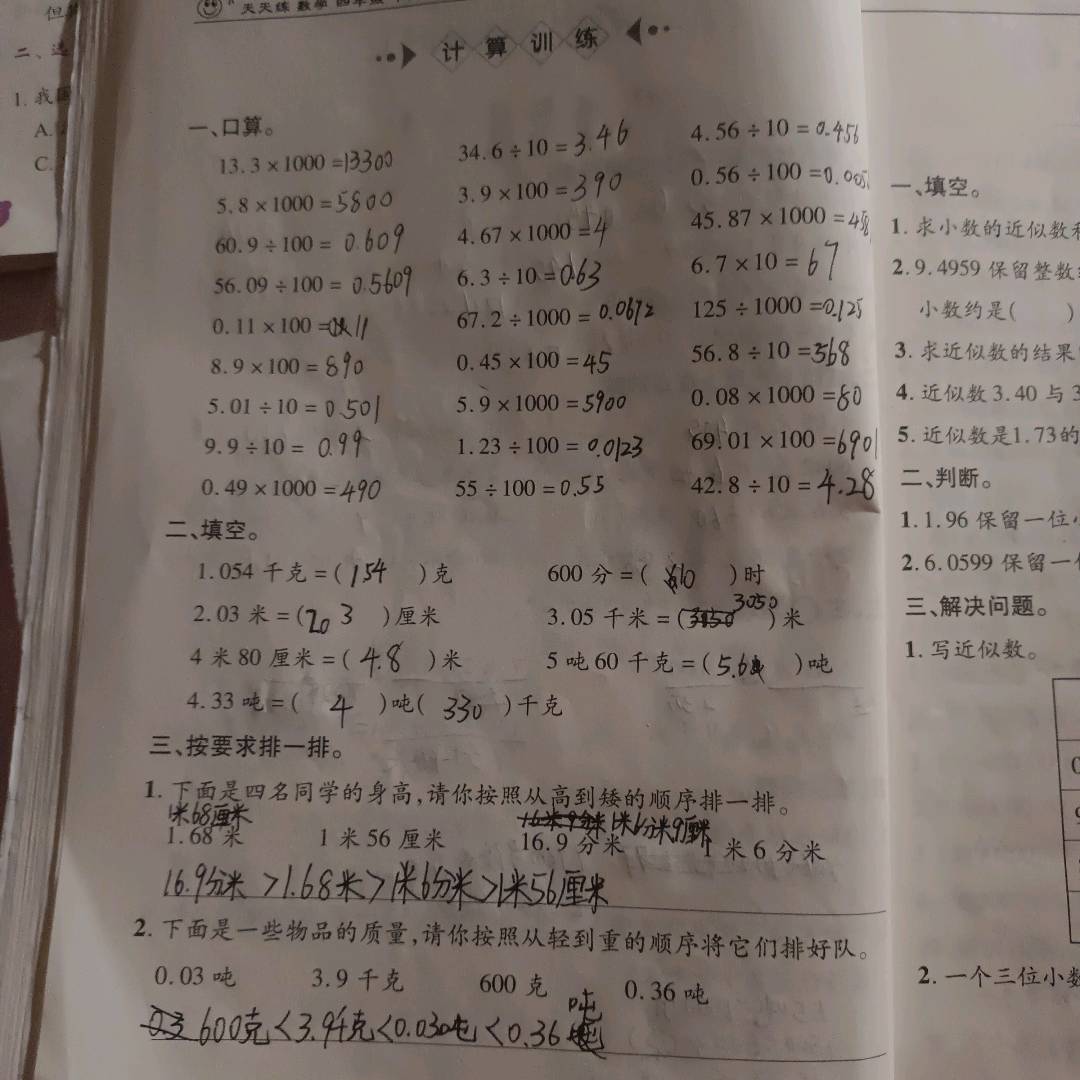 天天练 数学 四年级
计算训练
一、口算。
13.3×1000=13300 34.6÷10=3.46 4.56÷10=0.456
5.8×1000=5800 3.9×100=390 0.56÷100=0.005
60.9÷100=0.609 4.67×1000=4 45.87×1000=458
56.09÷100=0.5609 6.3÷10=0.63 6.7×10=67
0.11×100=11 67.2÷1000=0.0672 125÷1000=0.125
8.9×100=890 0.45×100=45 56.8÷10=568
5.01÷10=0.501 5.9×1000=5900 0.08×1000=80
9.9÷10=0.99 1.23÷100=0.0123 69.01×100=6901
0.49×1000=490 55÷100=0.55 42.8÷10=4.28
二、填空。
1.054千克=(154)克 600分=( )时
2.03米=(203)厘米 3.05千米=(3050)米
4米80厘米=(4.8)米 5吨60千克=(5.6)吨
4.33吨=(4)吨(330)千克
三、按要求排一排。
1.下面是四名同学的身高,请你按照从高到矮的顺序排一排。
1米68厘米 1米6分米9厘米
1.68米 1米56厘米 16.9分米 1米6分米
16.9分米>1.68米>1米6分米>1米56厘米
2.下面是一些物品的质量,请你按照从轻到重的顺序将它们排好队。
0.03吨 3.9千克 600克 0.36吨
600克<3.9千克<0.030吨<0.36吨
一、填空。
1.求小数的近似数
2.9.4959保留整数
小数约是( )
3.求近似数的结果
4.近似数3.40与3
5.近似数是1.73的
二、判断。
1.1.96保留一位
2.6.0599保留一
三、解决问题。
1.写近似数。
2.一个三位小数
二、选
1.我
A.
C.